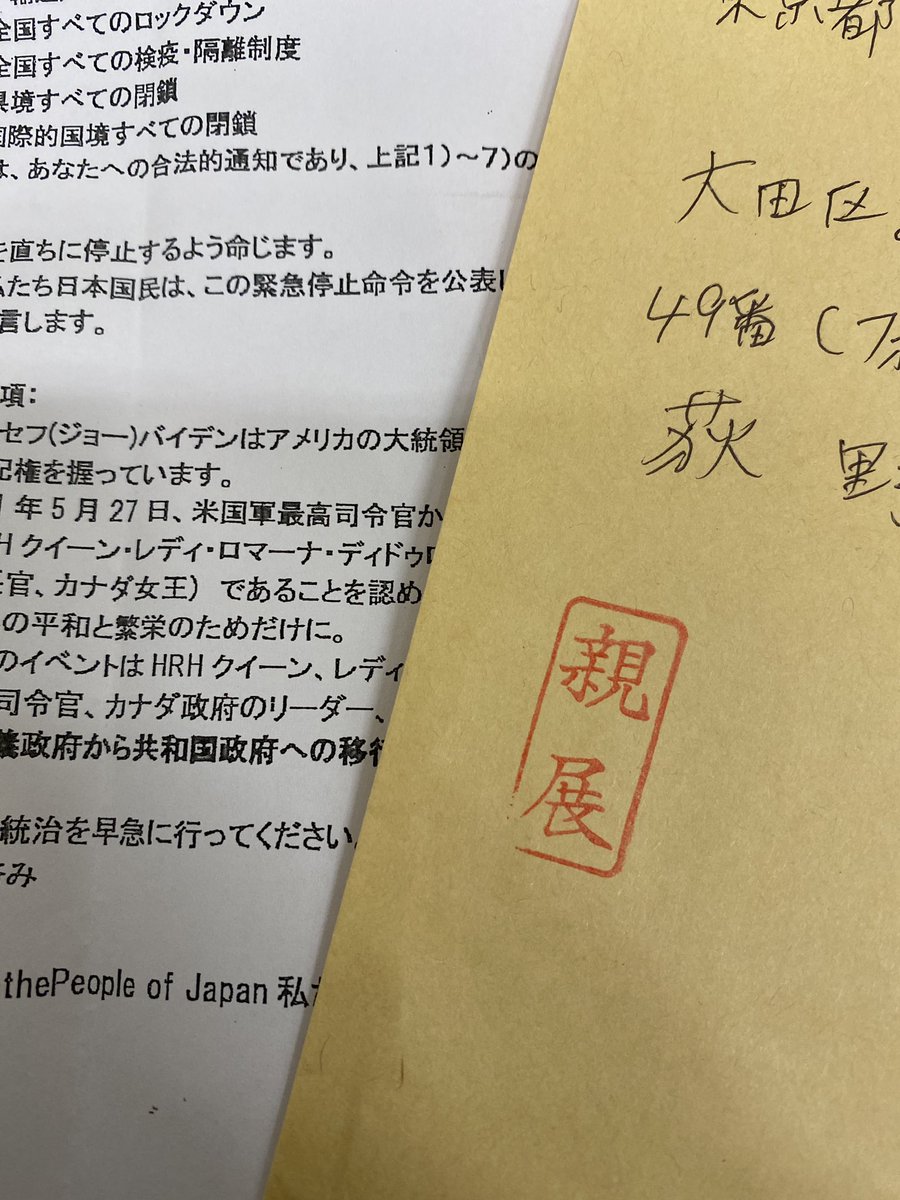 全国すべてのロックダウン
全国すべての検疫・隔離制度
県境すべての閉鎖
国際的国境すべての閉鎖
は、あなたへの合法的通知であり、上記1)~7)の
を直ちに停止するよう命じます。
私たち日本国民は、この緊急停止命令を公表し
言します。
項:
セフ(ジョー)バイデンはアメリカの大統領
記権を握っています。
年5月27日、米国軍最高司令官か
Hクイーン・レディ・ロマーナ・ディドゥロ
官、カナダ女王) であることを認め
の平和と繁栄のためだけに。
のイベントはHRHクイーン、レディ
司令官、カナダ政府のリーダー、
政府から共和国政府への移行
統治を早急に行ってください。
み
thePeople of Japan 私た
東京都
大田区
49番(フォ
荻 野
親展